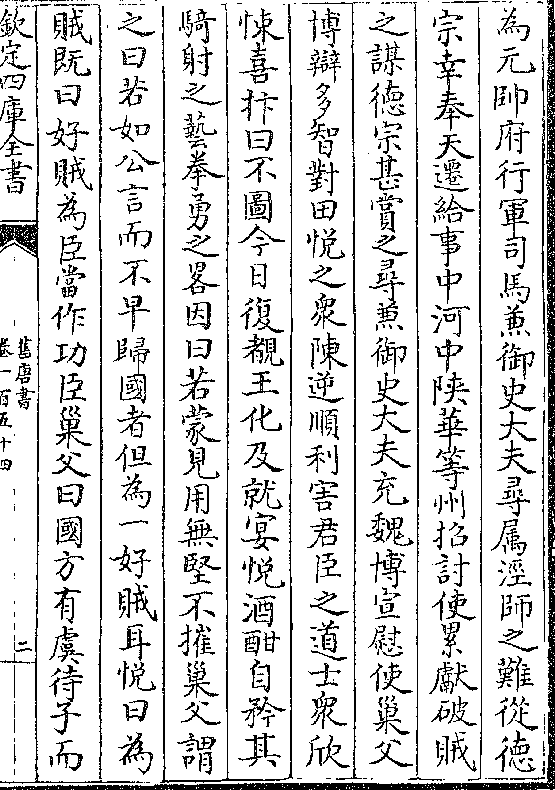 為元帥府行軍司馬兼御史大夫尋屬涇師之難從德
宗幸奉天遷給事中河中陝華等州招討使累獻破賊
之謀德宗甚賞之尋兼御史大夫充魏博宣慰使巢父
博辯多智對田悅之衆陳逆順利害君臣之道士衆欣
悚喜抃曰不圖今日復覩王化及就宴悅酒酣自矜其
騎射之藝拳勇之畧因曰若蒙見用無堅不摧巢父謂
之曰若如公言而不早歸國者但為一好賊耳悅曰為
賊既曰好賊為臣當作功臣巢父曰國方有虞待子而
欽定四庫全書
舊唐書
卷一百五十四
二